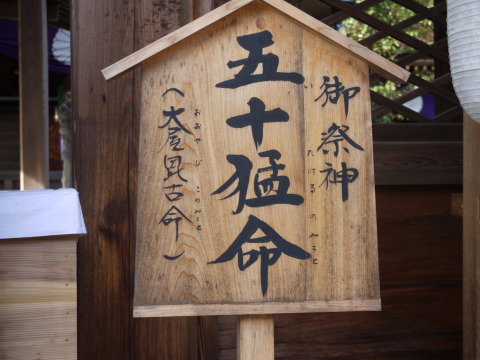 御祭神
五十猛命
いたけるのみこと
（大屋毘古命）
おおやびこのみこと